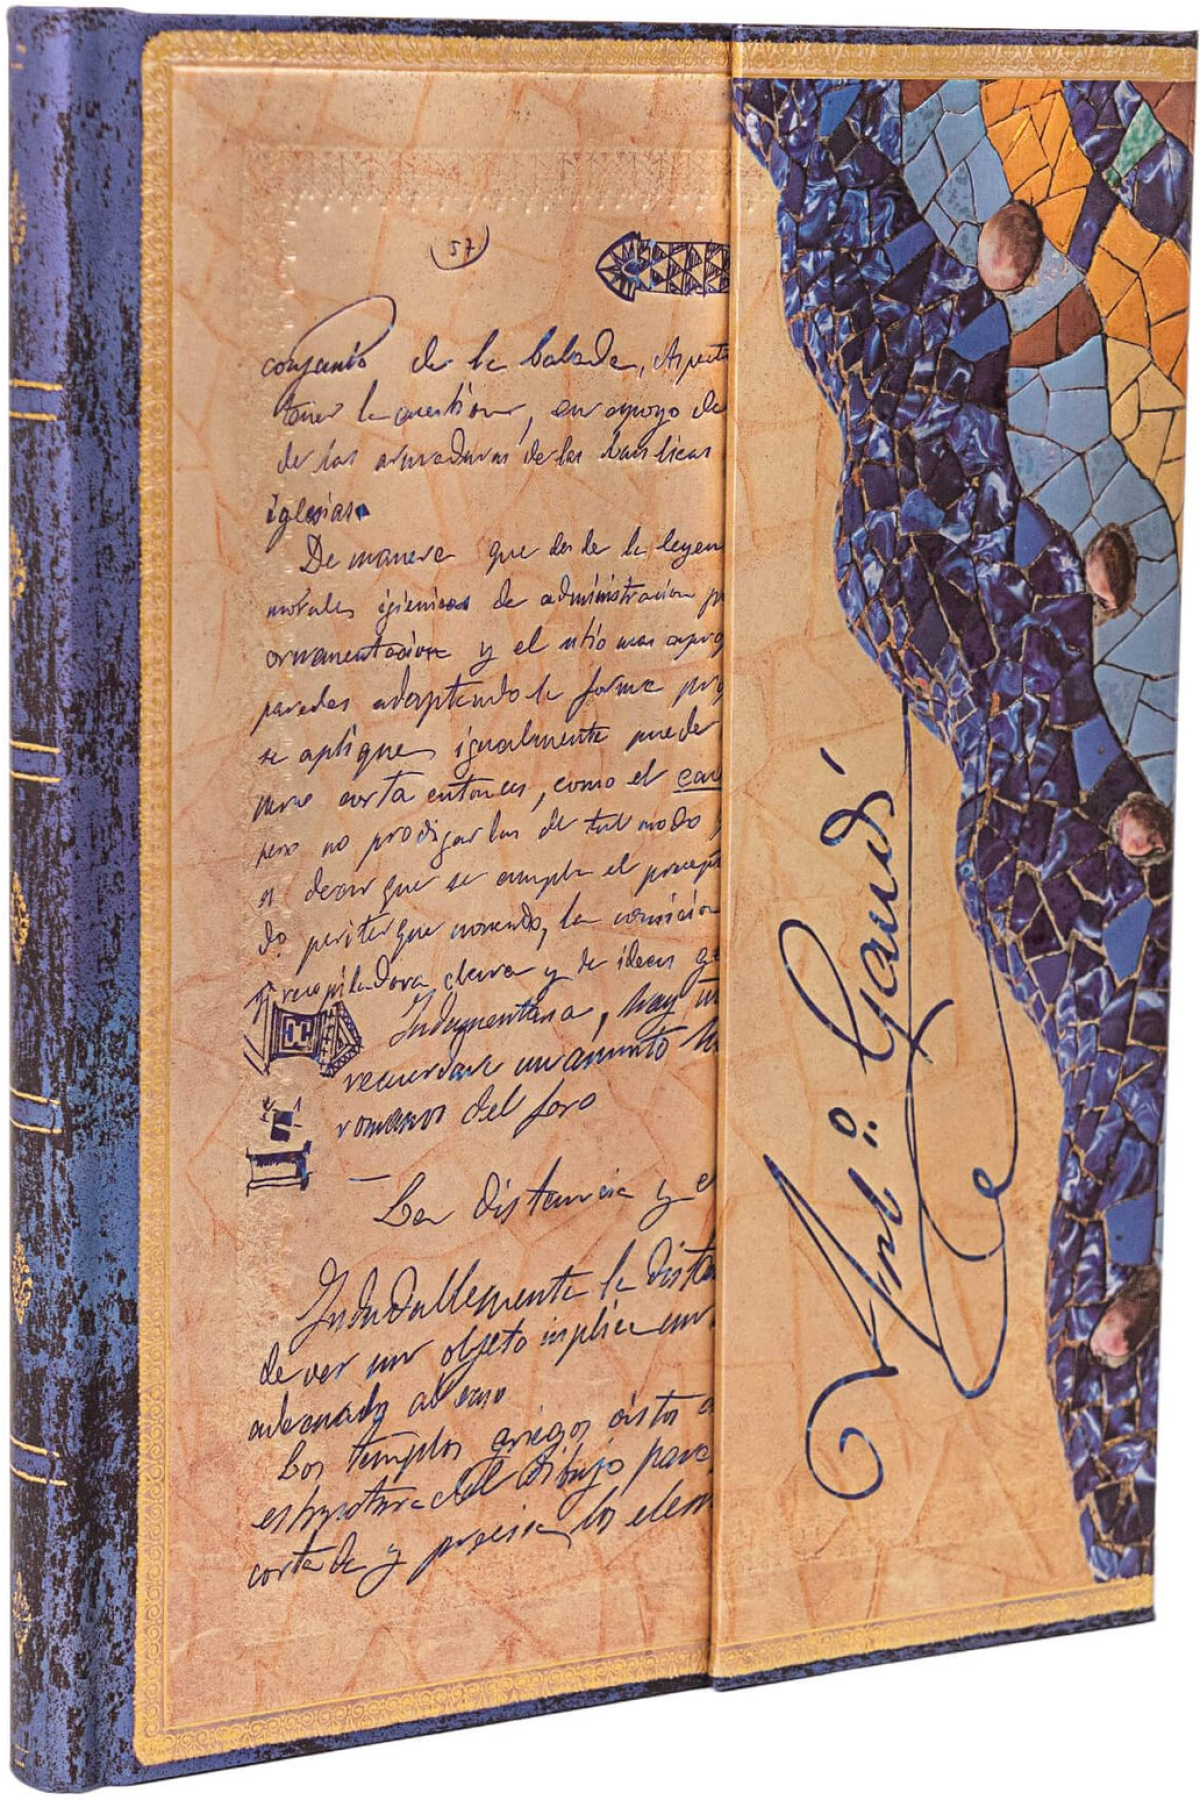 (57)
conjunto de la balada, Aspect
tener la cuestion, en apoyo de
de las armaduras de las basilicas
iglesias.
De manera que desde la leyen
morales igienicas de administracion
ornamentacion y el sitio mas aprop
paredes adaptando la forma
se apliquen igualmente puede
corta entonces, como el
pero no prodigarlas de tal modo
a decir que se cumpla el precept
do
recopiladora, clara y de ideas
Indumentaria, hay un
recuerdare un asunto
romanos del foro
— La distancia y
Indudablemente la dista
de ver un objeto implica un
adecuado al caso
Los templos griegos
estructura del dibujo para
cortada y precisa los elem
Ant.º Gaudí